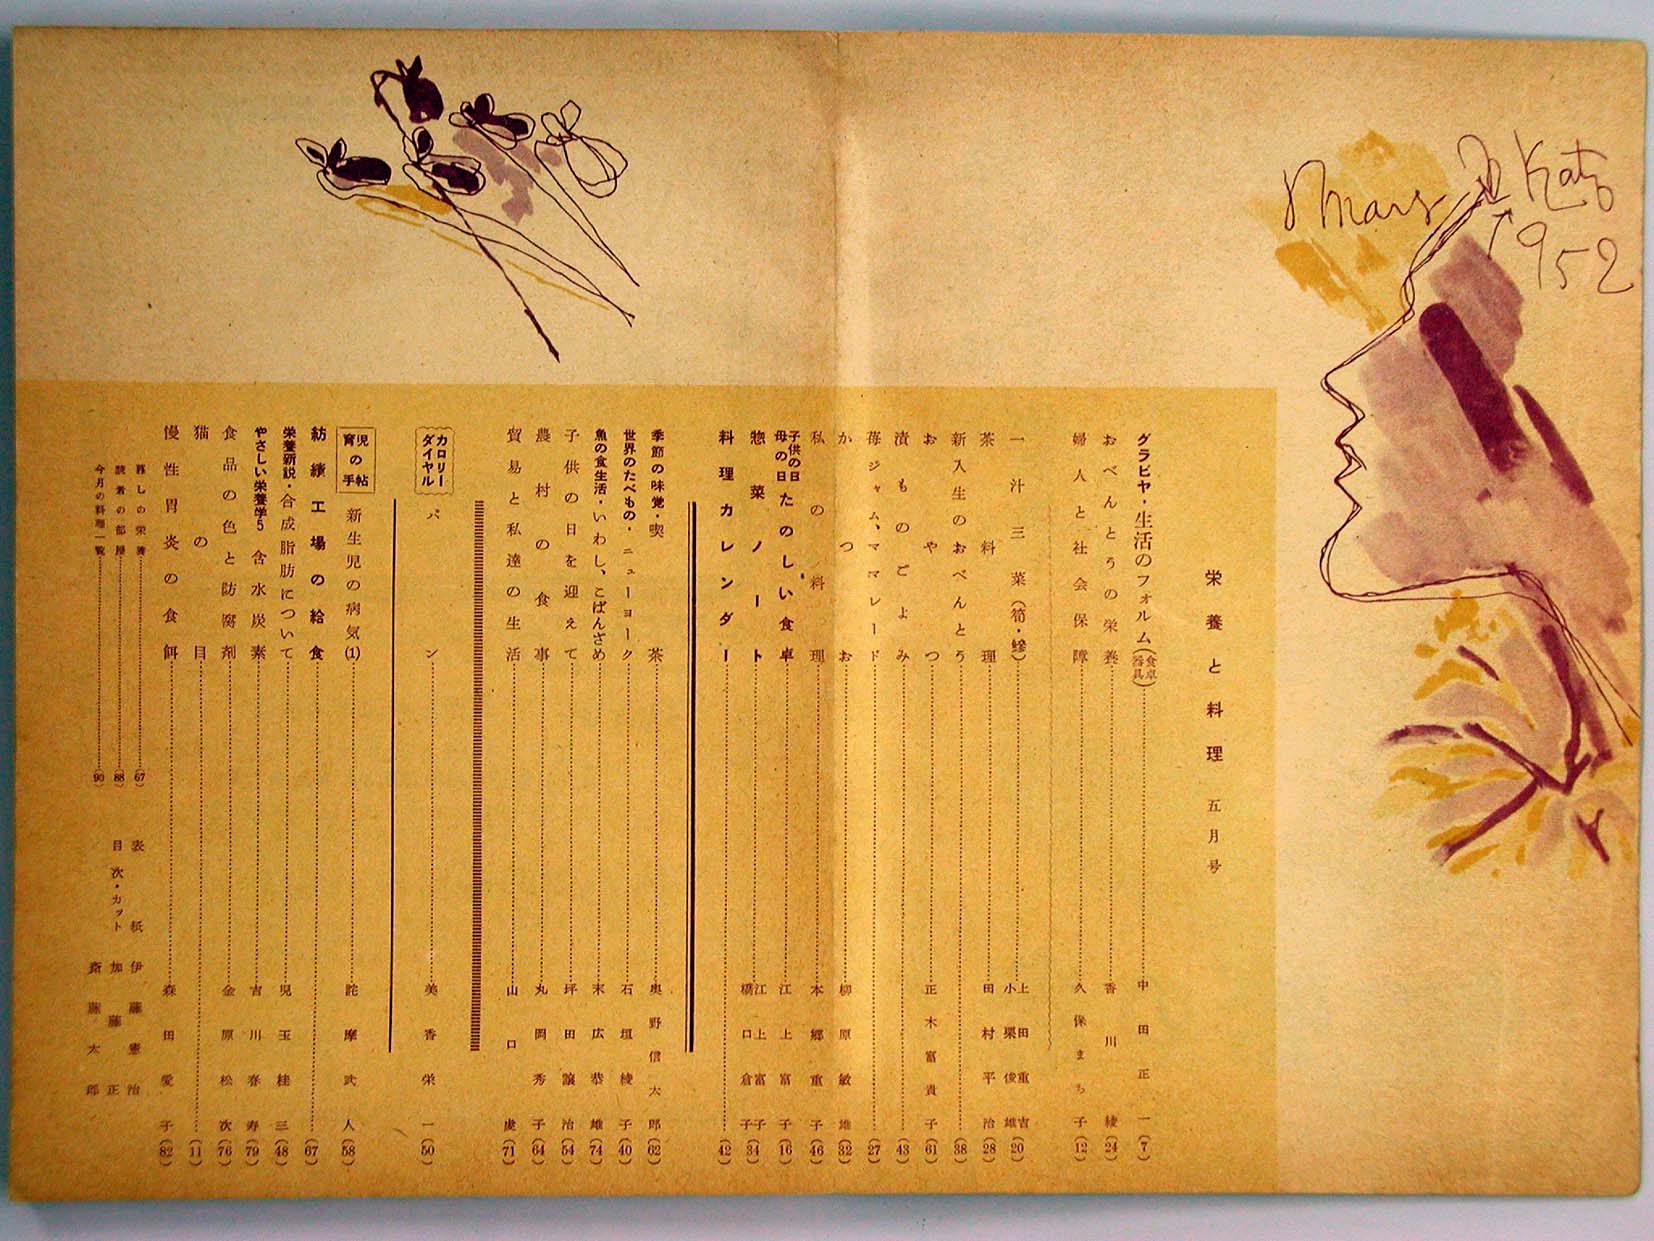 Mars Kato
1952
栄養と料理 五月号
グラビヤ・生活のフォルム(食卓器具)……中田正一(7)
おべんとうの栄養……香川綾(24)
婦人と社会保障……久保まち子(12)
一汁三菜(筍・鰺)……上田重吉 小栗俊雄(20)
茶料理……田村平治(28)
新入生のおべんとう……(38)
おやつ……正木富貴子(61)
漬ものごよみ……(43)
苺ジャム、ママレード……(27)
かつお……柳原敏雄(32)
私の料理……本郷重子(46)
子供の日 母の日 たのしい食卓……江上富子(16)
惣菜ノート……江上富子 橋口倉子(34)
料理カレンダー……(42)
季節の味覚・喫茶……奥野信太郎(62)
世界のたべもの・ニューヨーク……石垣綾子(40)
魚の食生活・いわし、こばんざめ……末広恭雄(74)
子供の日を迎えて……坪田譲治(54)
農村の食事……丸岡秀子(64)
貿易と私達の生活……山口虔(71)
カロリーダイヤル パン……美香栄一(50)
育児の手帖 新生児の病気(1)……詫摩武人(58)
紡績工場の給食……(67)
栄養新説・合成脂肪について……児玉桂三(48)
やさしい栄養学5 含水炭素……吉川春寿(79)
食品の色と防腐剤……金原松次(76)
猫の目……(11)
慢性胃炎の食餌……森田愛子(82)
暮しの栄養……(67)
読者の部屋……(88)
今月の料理一覧……(90)
表紙 伊藤憲治
目次・カット 加藤正
斎藤太郎